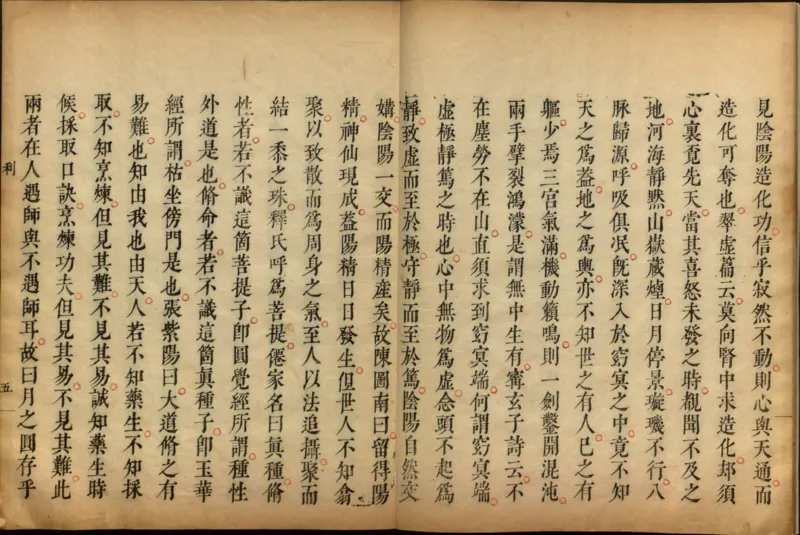 見陰陽造化功信乎寂然不動則心與天通而
造化可奪也翠虛篇云莫向腎中求造化却須
心裏覓先天當其喜怒未發之時覩聞不及之
地河海靜黙山嶽藏煙日月停景璇璣不行八
脉歸源呼吸俱泯旣深入於窈冥之中竟不知
天之爲葢地之爲輿亦不知世之有人已之有
軀少焉三宫氣滿機動籟鳴則一劍鑿開混沌
兩手擘裂鴻濛是謂無中生有寗玄子詩云不
在塵勞不在山直須求到窈冥端何謂窈冥端
虛極靜篤之時也心中無物爲虛念頭不起爲
靜致虛而至於極守靜而至於篤陰陽自然交
媾陰陽一交而陽精產矣故陳圖南曰留得陽
精神仙現成葢陽精日日發生但世人不知翕
聚以致散而爲周身之氣至人以法追攝聚而
結一黍之珠釋氏呼爲菩提僊家名曰眞種脩
性者若不識這箇菩提子卽圓覺經所謂種性
外道是也脩命者若不識這箇眞種子卽玉華
經所謂枯坐傍門是也張紫陽曰大道脩之有
易難也知由我也由天人若不知藥生不知採
取不知烹煉但見其難不見其易誠知藥生時
候採取口訣烹煉功夫但見其易不見其難此
兩者在人遇師與不遇師耳故曰月之圓存乎
利
五